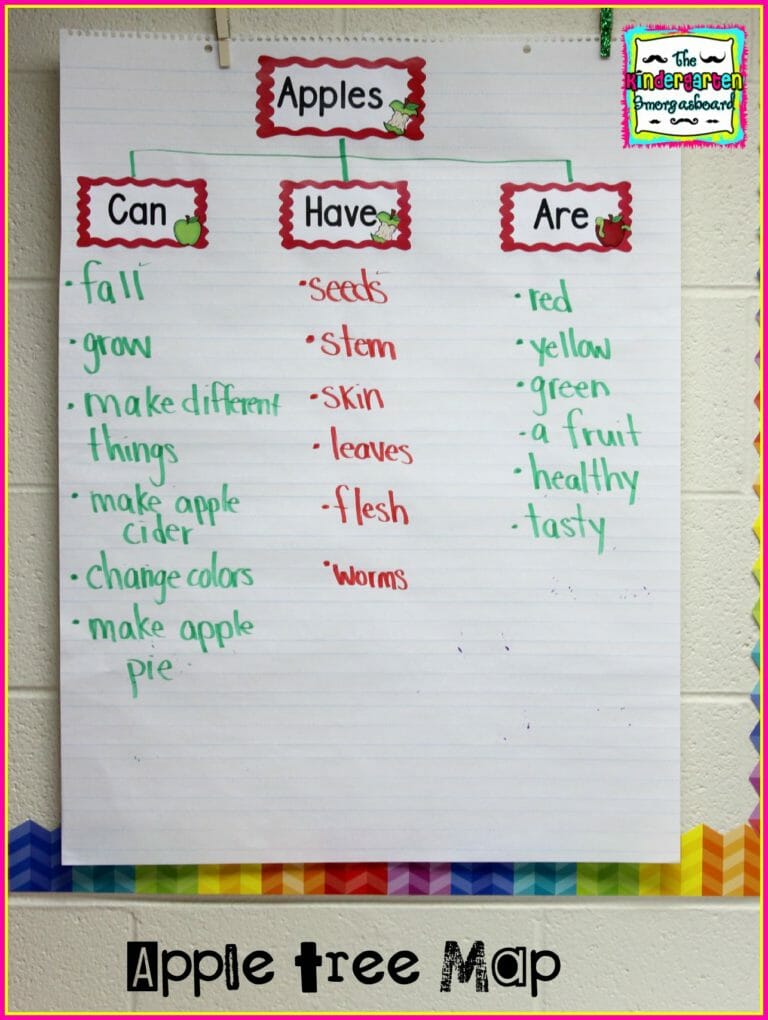 The
Kindergarten
Smorgasboard
Apples
Can
Have
Are
• fall
• grow
• make different
things
• make apple
cider
• change colors
• make apple
pie
• seeds
• stem
• skin
• leaves
• flesh
• worms
• red
• yellow
• green
• a fruit
• healthy
• tasty
Apple Tree Map